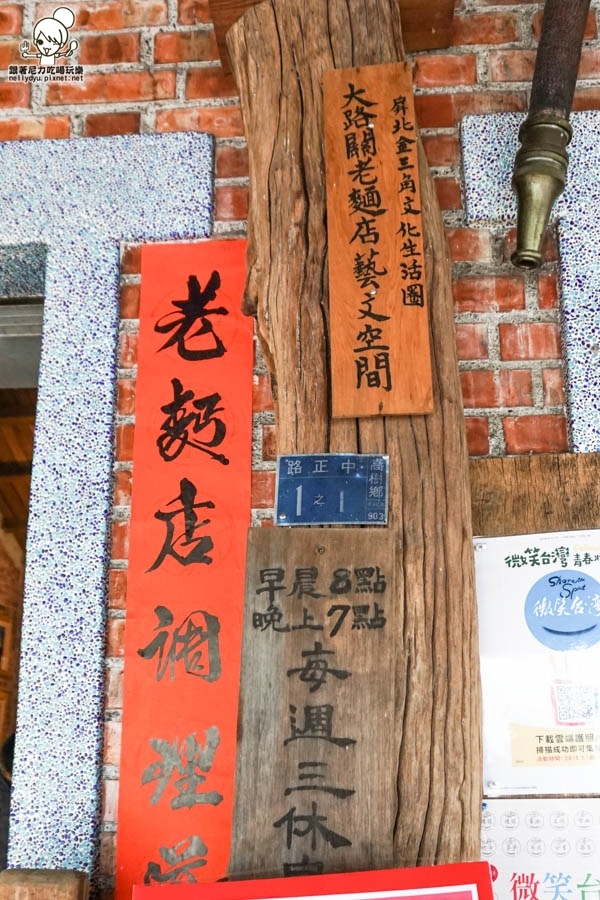 跟著尼力吃喝玩樂
nellydyu.pixnet.net
屏北金三角文化生活圈
大路關老麵店藝文空間
老麪店調理
高樹鄉
中正路
1之1
903
早晨8點
晚上7點
每週三休
微笑台灣 青春
Share the Spot
微笑台灣
下載雲端護照
掃描成功即可集
微笑台